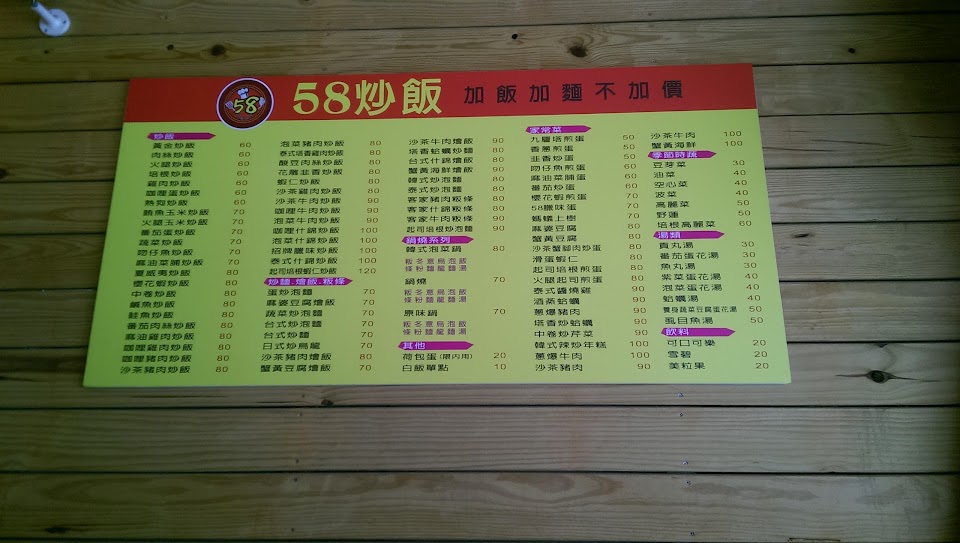 58
58炒飯 加飯加麵不加價
炒飯
黃金炒飯 60
肉絲炒飯 60
火腿炒飯 60
培根炒飯 60
雞肉炒飯 60
咖哩蛋炒飯 60
熱狗炒飯 60
鮪魚玉米炒飯 70
火腿玉米炒飯 70
番茄蛋炒飯 70
蔬菜炒飯 70
吻仔魚炒飯 70
麻油菜脯炒飯 70
夏威夷炒飯 80
櫻花蝦炒飯 80
中卷炒飯 80
鹹魚炒飯 80
鮭魚炒飯 80
番茄肉絲炒飯 80
麻油雞肉炒飯 80
咖哩雞肉炒飯 80
咖哩豬肉炒飯 80
沙茶豬肉炒飯 80
泡菜豬肉炒飯 80
泰式塔香雞肉炒飯 80
釀豆肉絲炒飯 80
花雕韭香炒飯 80
蝦仁炒飯 80
沙茶雞肉炒飯 80
沙茶牛肉炒飯 90
咖哩牛肉炒飯 90
泡菜牛肉炒飯 90
咖哩什錦炒飯 100
泡菜什錦炒飯 100
招牌臘味炒飯 100
泰式什錦炒飯 100
起司培根蝦仁炒飯 120
炒麵.燴飯.粄條
蛋炒泡麵 70
麻婆豆腐燴飯 70
蔬菜炒泡麵 70
台式炒泡麵 70
台式炒麵 70
日式炒烏龍 70
沙茶豬肉燴飯 80
蟹黃豆腐燴飯 70
沙茶牛肉燴飯 90
塔香蛤蠣炒麵 80
台式什錦燴飯 90
蟹黃海鮮燴飯 90
韓式炒泡麵 80
泰式炒泡麵 80
客家豬肉粄條 80
客家什錦粄條 90
客家牛肉粄條 90
起司培根炒泡麵 90
鍋燒系列
韓式泡菜鍋 80
粄冬意烏泡飯
條粉麵龍麵湯
鍋燒 70
粄冬意烏泡飯
條粉麵龍麵湯
原味鍋 70
粄冬意烏泡飯
條粉麵龍麵湯
其他
荷包蛋(限內用) 20
白飯單點 10
家常菜
九層塔煎蛋 50
香蔥煎蛋 50
韭香炒蛋 50
吻仔魚煎蛋 60
麻油菜脯蛋 60
番茄炒蛋 60
櫻花蝦煎蛋 70
58臘味蛋 70
螞蟻上樹 70
麻婆豆腐 70
蟹黃豆腐 80
沙茶蟹腳肉炒蛋 80
滑蛋蝦仁 80
起司培根煎蛋 80
火腿起司煎蛋 80
泰式醬燒雞 90
酒蒸蛤蠣 90
蔥爆豬肉 90
塔香炒蛤蠣 90
中卷炒芹菜 90
韓式辣炒年糕 100
蔥爆牛肉 100
沙茶豬肉 90
沙茶牛肉 100
蟹黃海鮮 100
季節時蔬
豆芽菜 30
油菜 40
空心菜 40
波菜 40
高麗菜 50
野蓮 50
培根高麗菜 60
湯類
貢丸湯 30
番茄蛋花湯 30
魚丸湯 30
紫菜蛋花湯 40
泡菜蛋花湯 40
蛤蠣湯 40
養身蔬菜豆腐蛋花湯 50
虱目魚湯 50
飲料
可口可樂 20
雪碧 20
美粒果 20